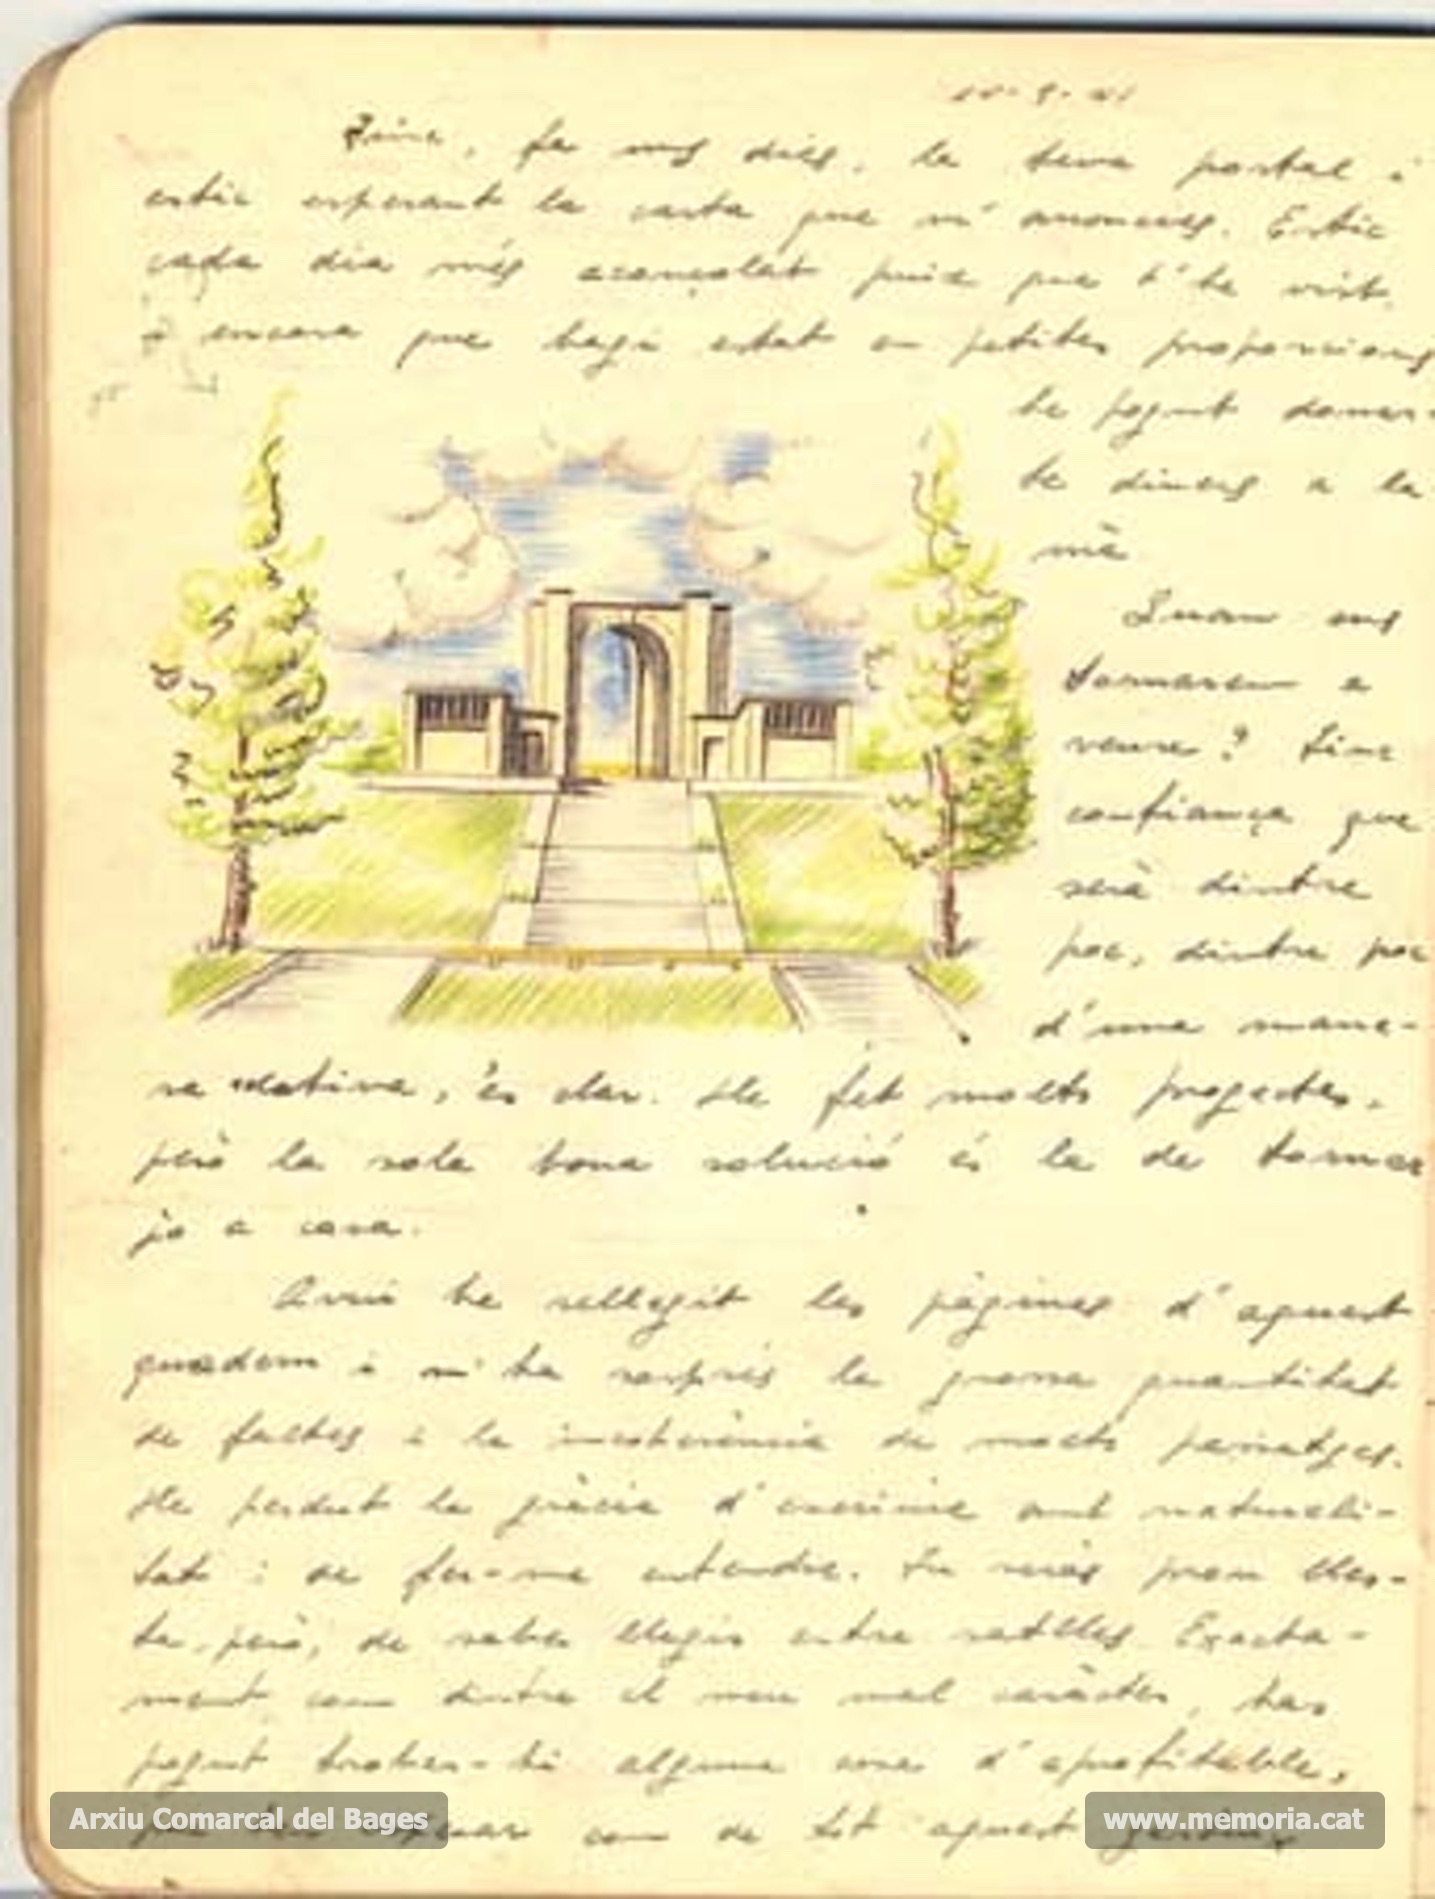 Tinc, fa uns dies, la teva postal i
estic esperant la carta que m' anuncies. Estic
cada dia més aconsolat puix que t' he vist.
i encara que hagi estat en petites proporcions
he pogut donar-
te diners a la
mà
Quan ens
tornarem a
veure? Tinc
confiança que
serà dintre
poc, dintre poc
d' una mane-
ra relativa, és clar. He fet molts projectes,
però la sola bona solució és la de tornar
jo a casa.
Avui he rellegit les pàgines d' aquest
quadern i m' ha sorprès la grossa quantitat
de faltes i la incoherència de molts passatges.
He perdut la gràcia d' escriure amb naturali-
tat i de fer-me entendre. Tu seràs prou
però, de saber elegir entre ratlles. Exacta-
ment com dintre el meu mal caràcter, has
pogut trobar-hi alguna cosa d' aprofitable,
com de tot aquest
Arxiu Comarcal del Bages
www.memoria.cat